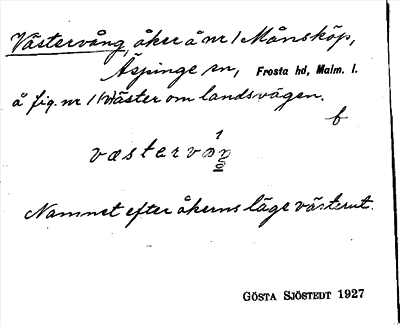 Västervång, åker å nr 1 Månsköp,
Äspinge sn, Frosta hd, Malm. l.
å fig. nr 1 Väster om landsvägen.
f
væstərvɔŋ
Namnet efter åkerns läge västerut.
GÖSTA SJÖSTEDT 1927